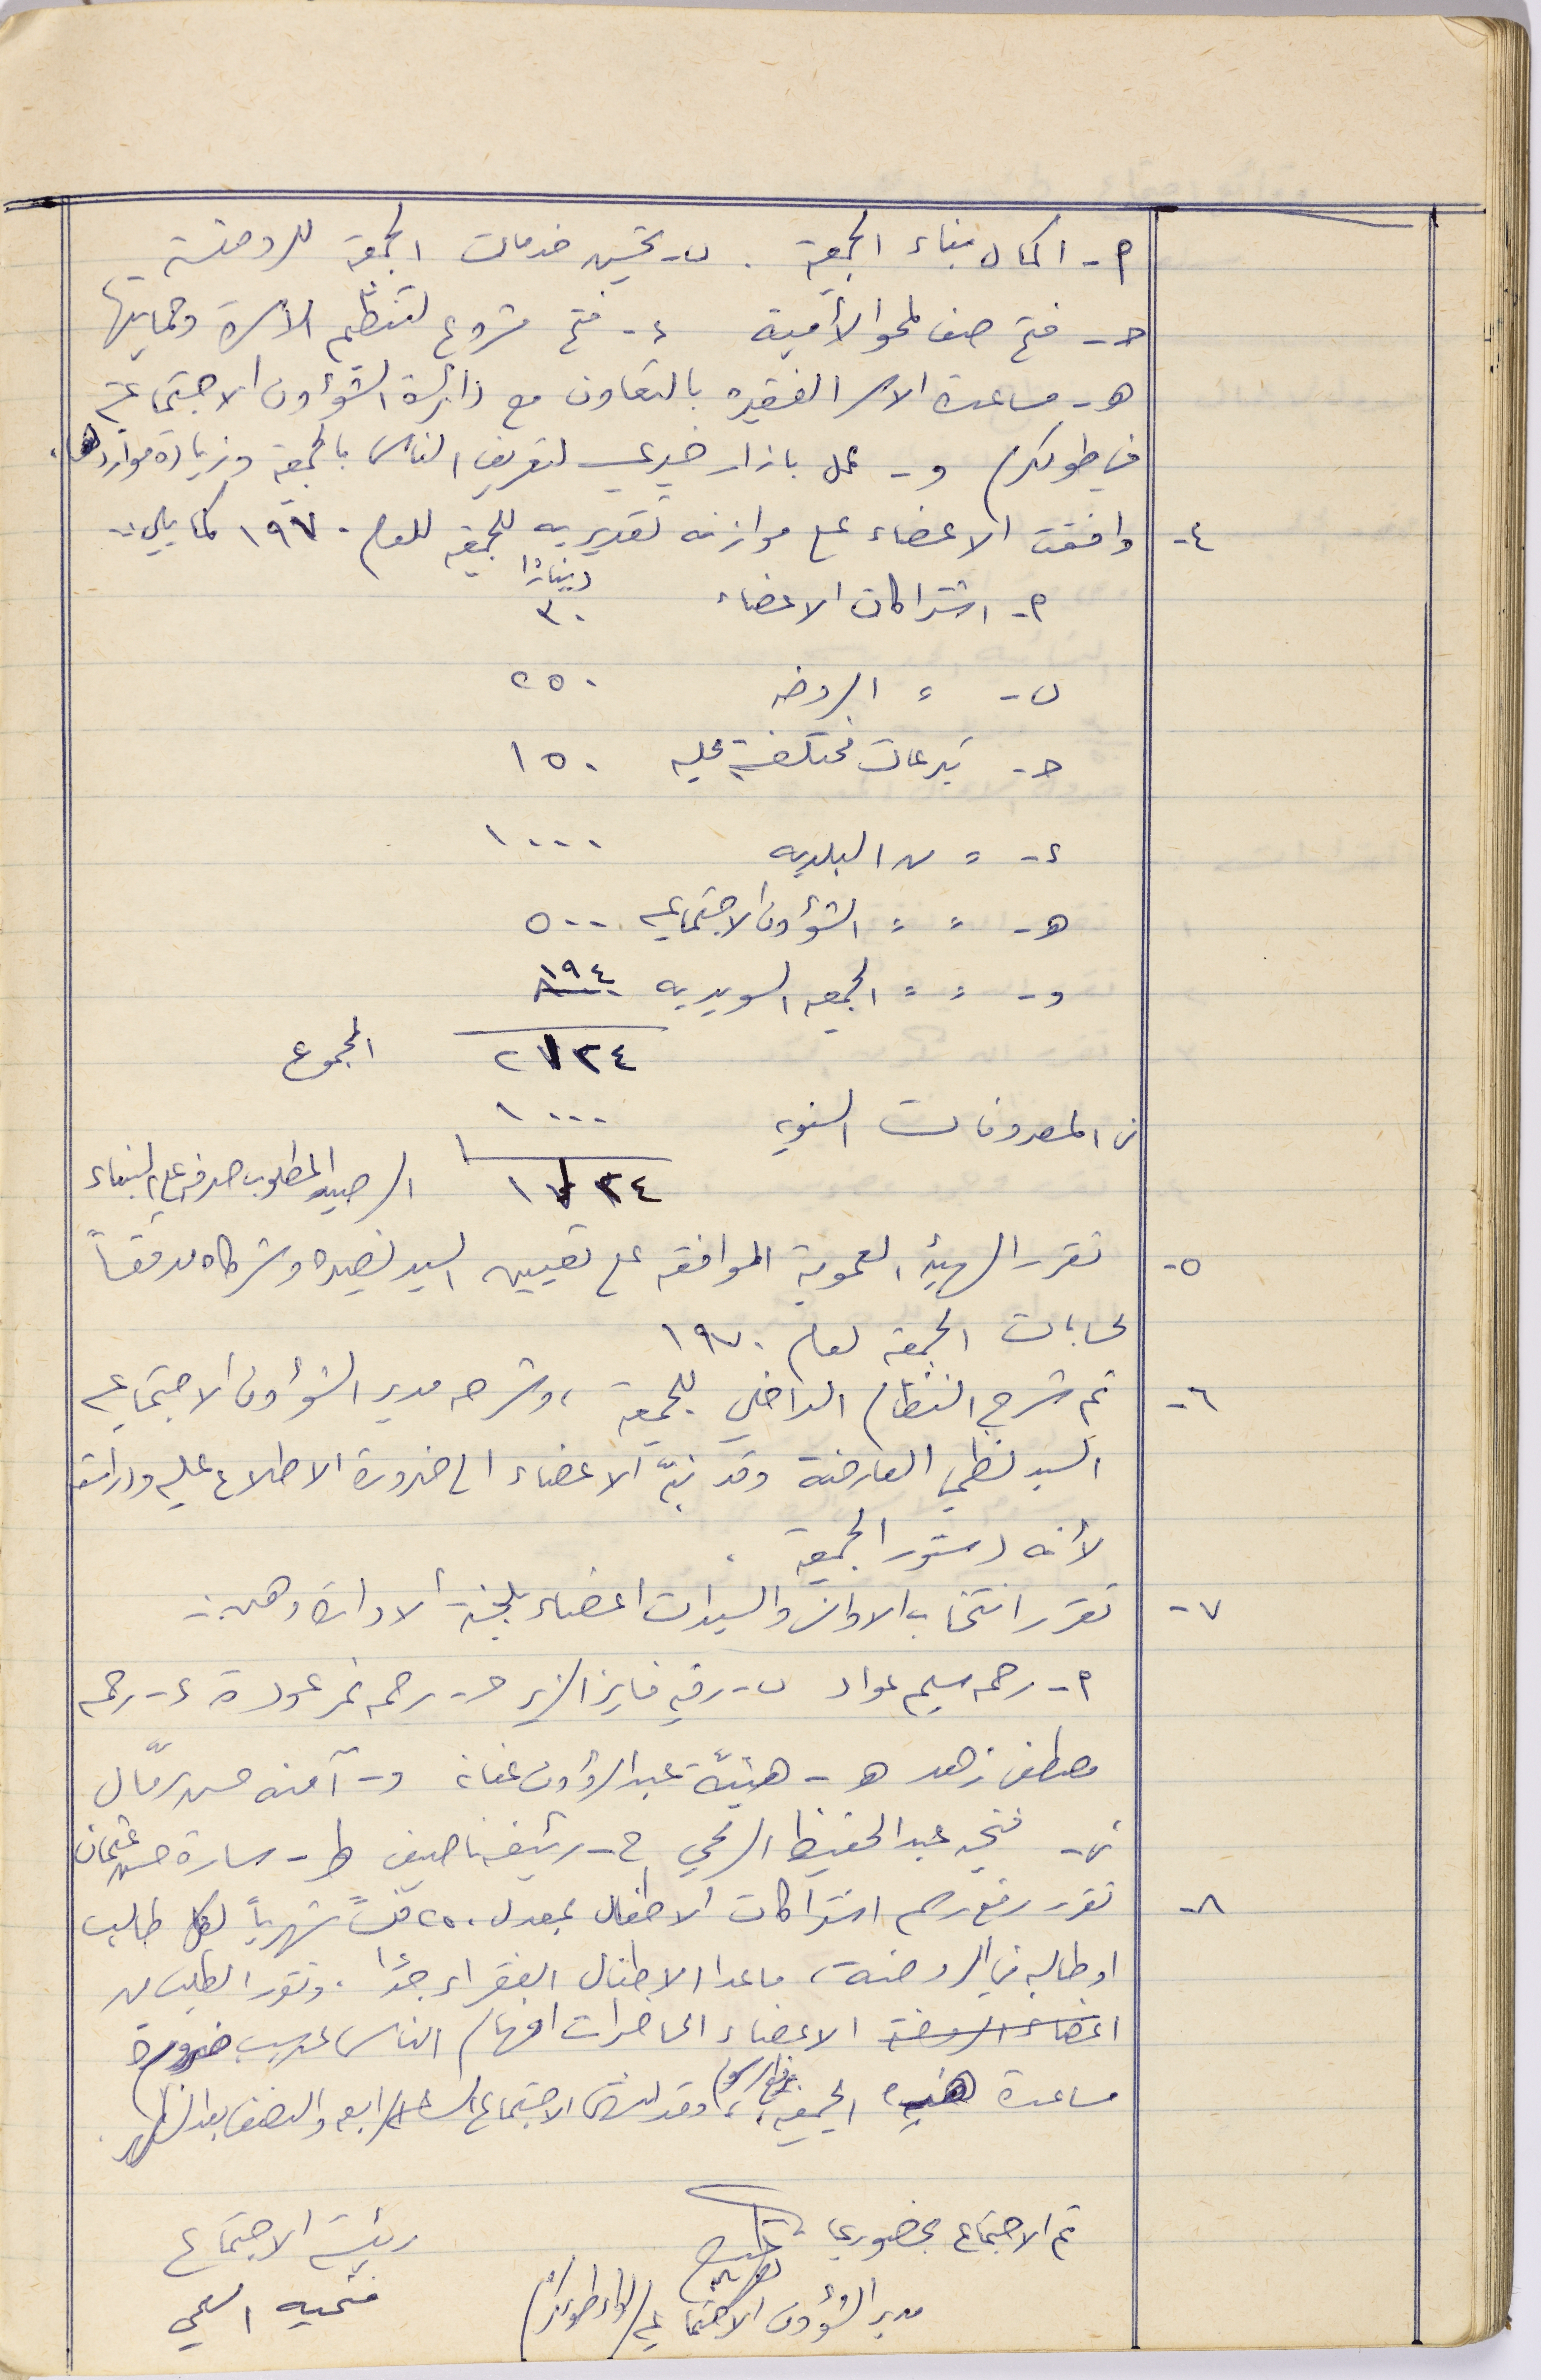 أ- اكمال بناء الجمعية . ب- تحسين خدمات الجمعية للروضة
جـ- فتح صف لمحو الأمية د- فتح مشروع لتنظيم الأسرة وحمايتها
هـ- مساعدة الاسر الفقيره بالتعاون مع دائرة الشؤون الاجتماعية
في طولكرم و- عمل بازار خيري لتعريف الناس بالجمعية وزيادة مواردها.
٤- وافقت الاعضاء على موازنه تقديريه للجمعية للعام ١٩٧٠ كما يلي :-
دينارًا
أ- اشتراكات الاعضاء ٣٠
ب- " الروضه ٢٥٠
جـ- تبرعات مختلفة محليه ١٥٠
د- " من البلديه ١٠٠٠
هـ- " " الشؤون الاجتماعيه ٥٠٠
و- " " الجمعيه السويديه ١٩٤
٢١٢٤ المجموع
ن المصروفات السنويه ١٠٠٠
١١٢٤ الرصيد المطلوب صرفه على البناء
٥- تقرر الهيئة العمومية الموافقه على تعيين السيد نصيره وشركاه مدققاً
لحسابات الجمعية لعام ١٩٧٠
٦- تم شرح النظام الداخلي للجمعية ، وشرحه مدير الشؤون الاجتماعيه
السيد نظمي العارضة وقد نبّه الاعضاء الى ضرورة الاطلاع عليه ودراسته
لأنه دستور الجمعية .
٧- تقرر انتخاب الاوانس والسيدات اعضاء للجنة الادارة وهن :-
أ- رحمه سليم عواد ب- رقيه فايز الزير جـ- رحمه نمر عودة د- رحمه
مصطفى زهد هـ- هنيّة عبد الرؤوف عنايه و- آمنه حسن رمّال
ز- فتحيه عبد الحفيظ الرمحي ح- رئيفه ناصيف ط- سارة حسن عثمان
٨- تقرر رفع رسم اشتراكات الاطفال بمعدل ٢٥٠ فلساً شهرياً لكل طالب
او طالبه في الروضة ، ما عدا الاطفال الفقراء جدًا . وتقرر الطلب من
اعضاء الروضة الاعضاء الحاضرات افهام الناس عن سبب ضرورة
مساعدة هذه الجمعيه برفع الرسوم ، وقد انتهى الاجتماع الساعة الرابعه والنصف بعد الظهر.
تم الاجتماع بحضوري رئيسة الاجتماع
مدير الشؤون الاجتماعيه / لواء طولكرم فتحيه